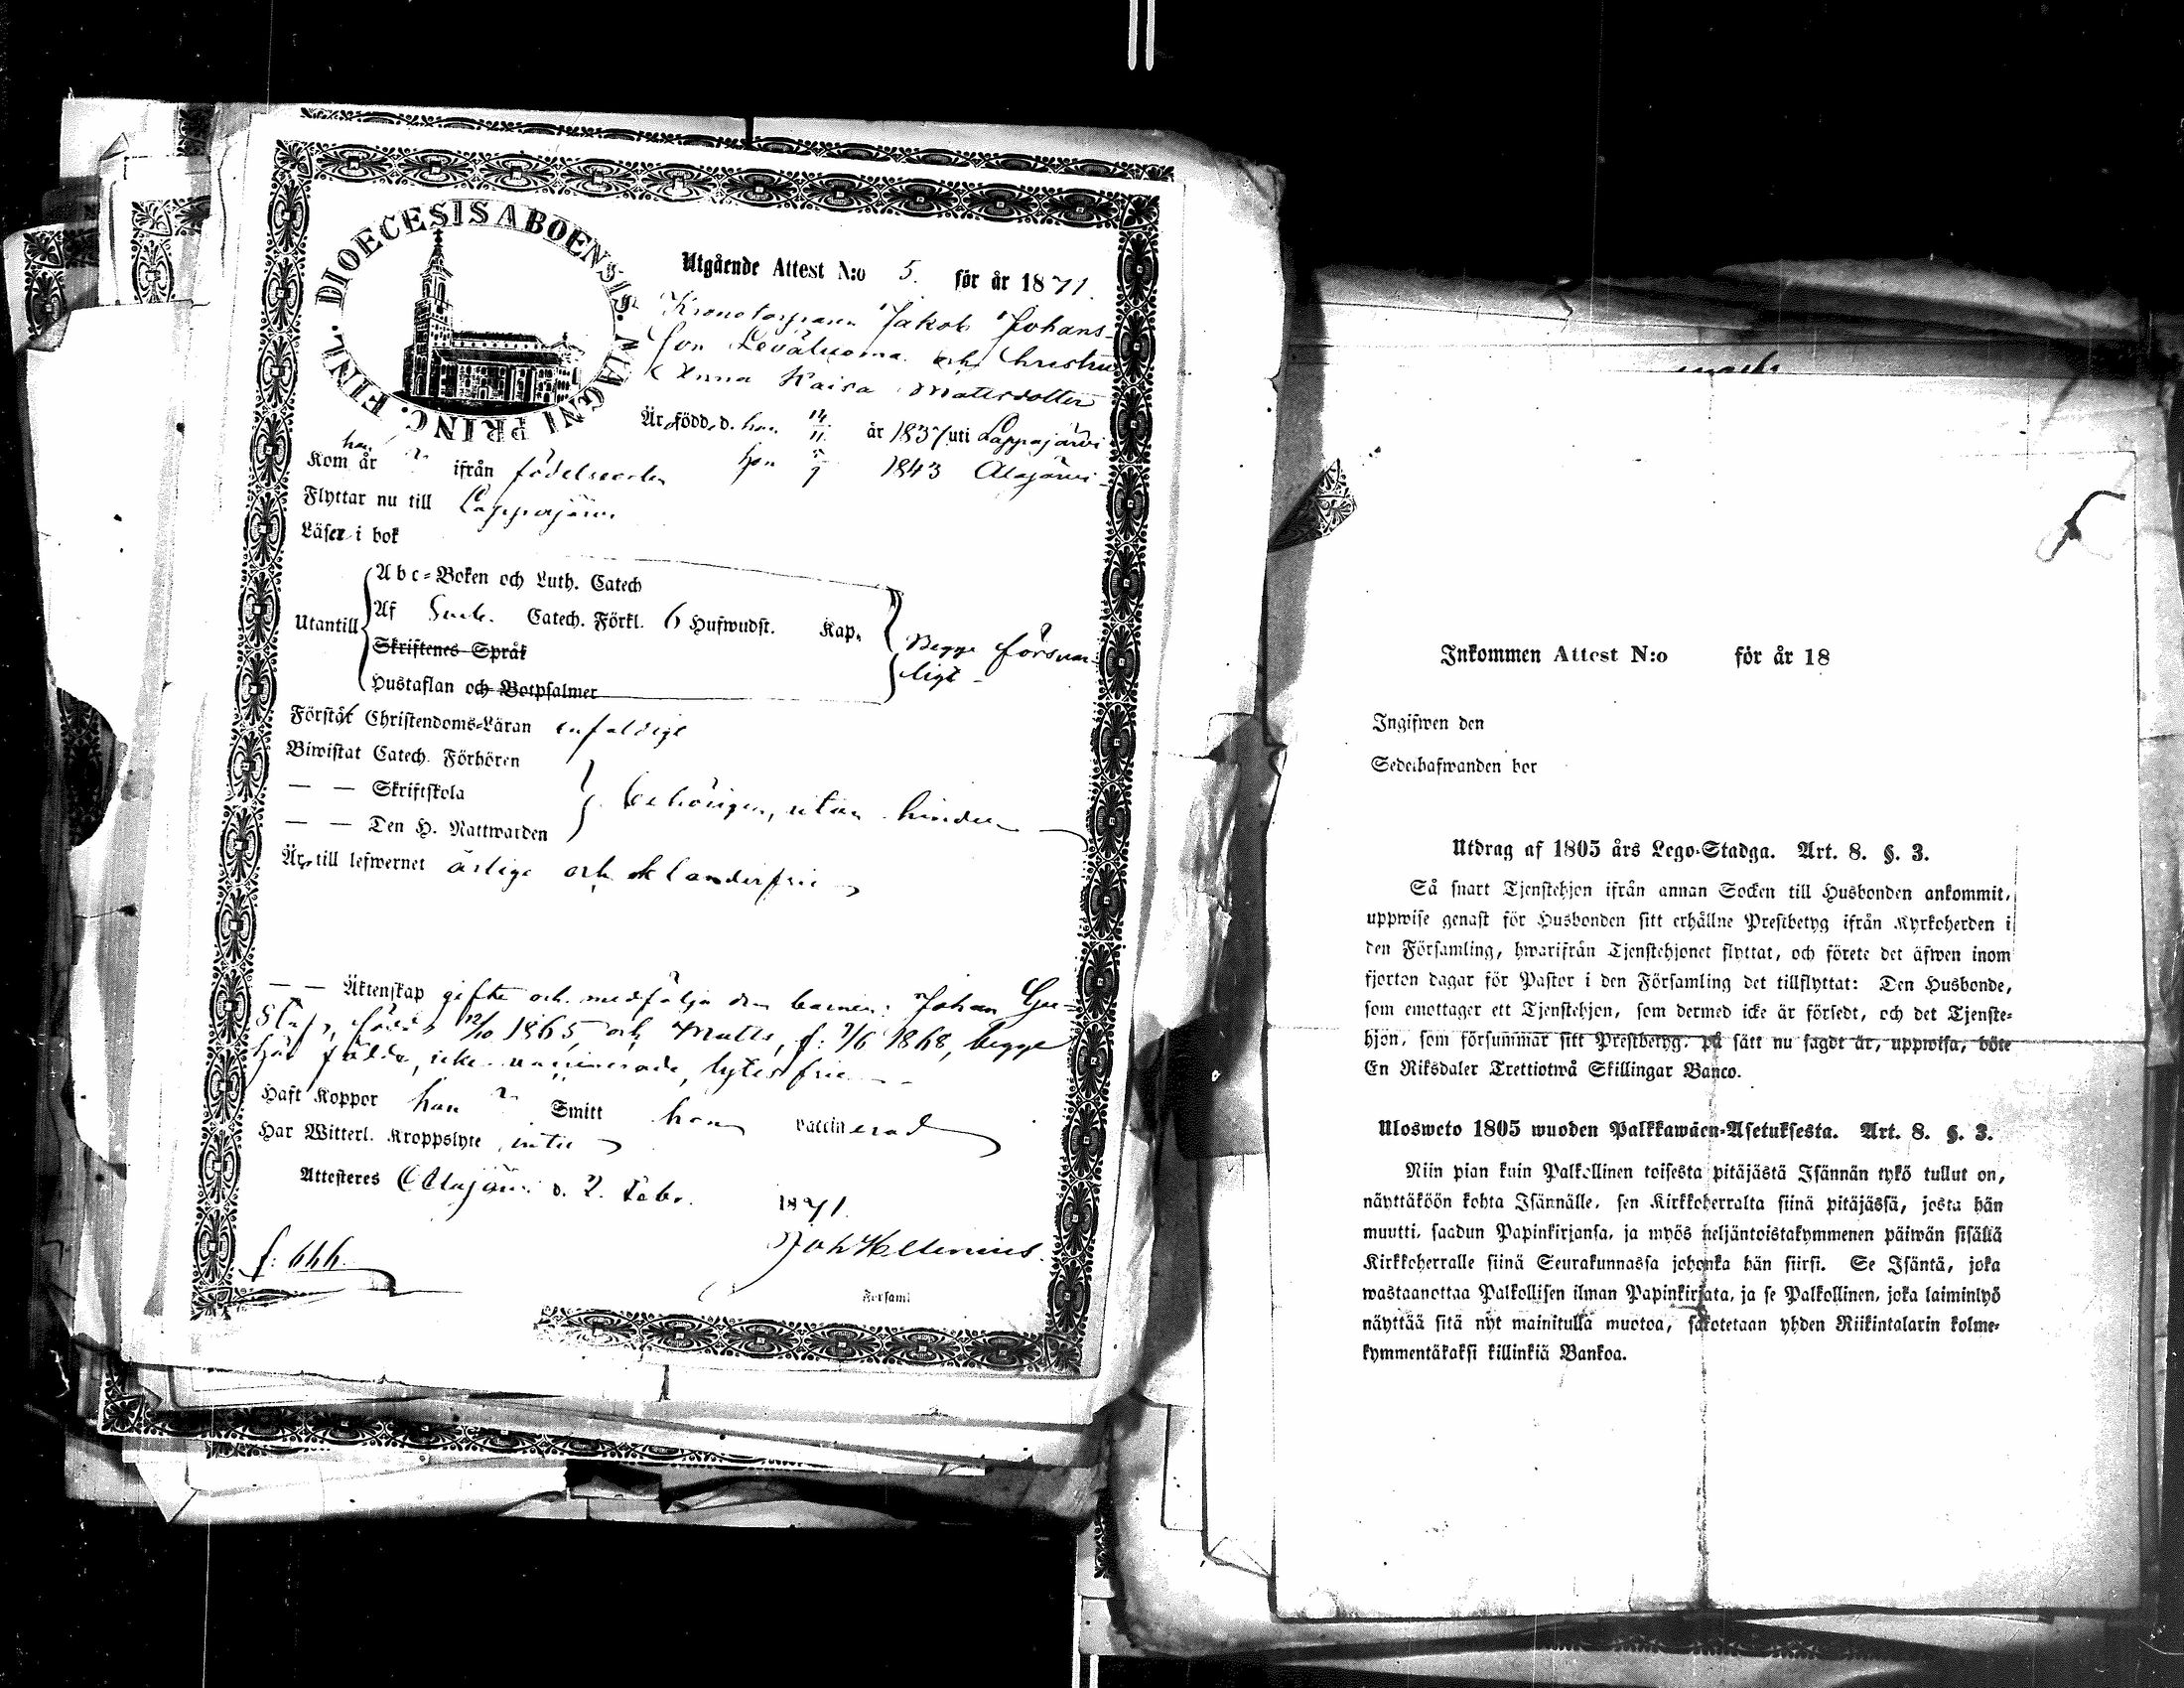 DIOECESIS ABOENSIS. MAGNI PRINC. FINL.
Utgående Attest N:o 5. för år 1871.
Kronotorparen Jakob Johans-
son Leväluoma och hustru
Anna Kaisa Mattsdotter
Är födde d. han 14/11 år 1837 uti Lappajärvi
hon 1843 Alajärvi
han
Kom år ? ifrån födelseorten
Flyttar nu till Lappajärvi
Läser i bok
Utantill
Abc-Boken och Luth. Catech
Af Catech. Förkl. 6 Hufwudst. Kap.
Skriftenes Språk
Hustaflan och Botpsalmer
Begge försvar-
ligt
Förstå Christendoms-Läran enfaldigt
Biwistat Catech. Förhören
— — Skriftskola
— — Den H. Nattwarden
behörigen, utan hinder
Är till lefwernet ärlige och klanderfrie
— — Äktenskap gifte och medfölja dem barnen: Johan Gu-
staf, född 12/10 1865, och Matts, f: 7/6 1868, begge
här födde, icke vaccinerade, lytesfrie
Haft Koppor han ? Smitt hon vaccinerad
Har Witterl. Kroppslyte intet
Attesteres Alajärvi d. 2. Febr. 1871.
Joh Hellenius.
f. 666.
Församl
Inkommen Attest N:o för år 18
Ingifwen den
Sedelhafwanden bor
Utdrag af 1805 års Lego-Stadga. Art. 8. §. 3.
Så snart Tjenstehjon ifrån annan Socken till Husbonden ankommit,
uppwise genast för Husbonden sitt erhållne Prestbetyg ifrån Kyrkoherden i
den Församling, hwarifrån Tjenstehjonet flyttat, och förete det äfwen inom
fjorton dagar för Pastor i den Församling det tillflyttat: Den Husbonde,
som emottager ett Tjenstehjon, som dermed icke är försedt, och det Tjenste-
hjon, som försummar sitt Prestbetyg, på sätt nu sagdt är, uppwisa, böte
En Riksdaler Trettiotwå Skillingar Banco.
Uloswето 1805 wuoden Palkkawäen-Asetuksesta. Art. 8. §. 3.
Niin pian kuin Palkollinen toisesta pitäjästä Isännän tykö tullut on,
näyttäköön kohta Isännälle, sen Kirkkoherralta siinä pitäjässä, josta hän
muutti, saadun Papinkirjansa, ja myös neljäntoistakymmenen päiwän sisällä
Kirkkoherralle siinä Seurakunnassa johonka hän siirsi. Se Isäntä, joka
wastaanottaa Palkollisen ilman Papinkirjata, ja se Palkollinen, joka laiminlyö
näyttää sitä nyt mainitulla muotoa, sakotetaan yhden Riikintalarin kolme-
kymmentäkaksi killinkiä Bankoa.